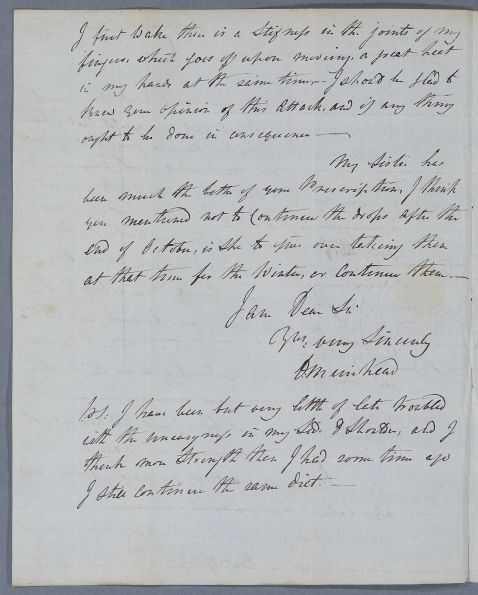 I first wake there is a Stifness in the joints of my
fingers, which goes off upon moving, a great heat
in my hands at the same time,- I should be glad to
know your opinion of this Attack, and if any thing
ought to be done in consequence —
My Sister has
been much the better of your Prescription, I think
you mentioned not to Continue the drops after the
end of October, is She to give over taking them
at that time for the Winter, or Continue them. —
I am Dear Sir
Yrs. very Sincerely
Muirhead
PS. I have been but very little of late troubled
with the uneasyness in my Side & Shoulder, and I
think more Strength than I had some time ago
I still continue the same diet. —